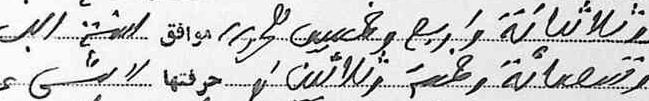 وثلاثمائة وأربع وخمسين هجرية موافق لسنة الف
وتسعمائة وخمسة وثلاثين م حرفتها لا شئ